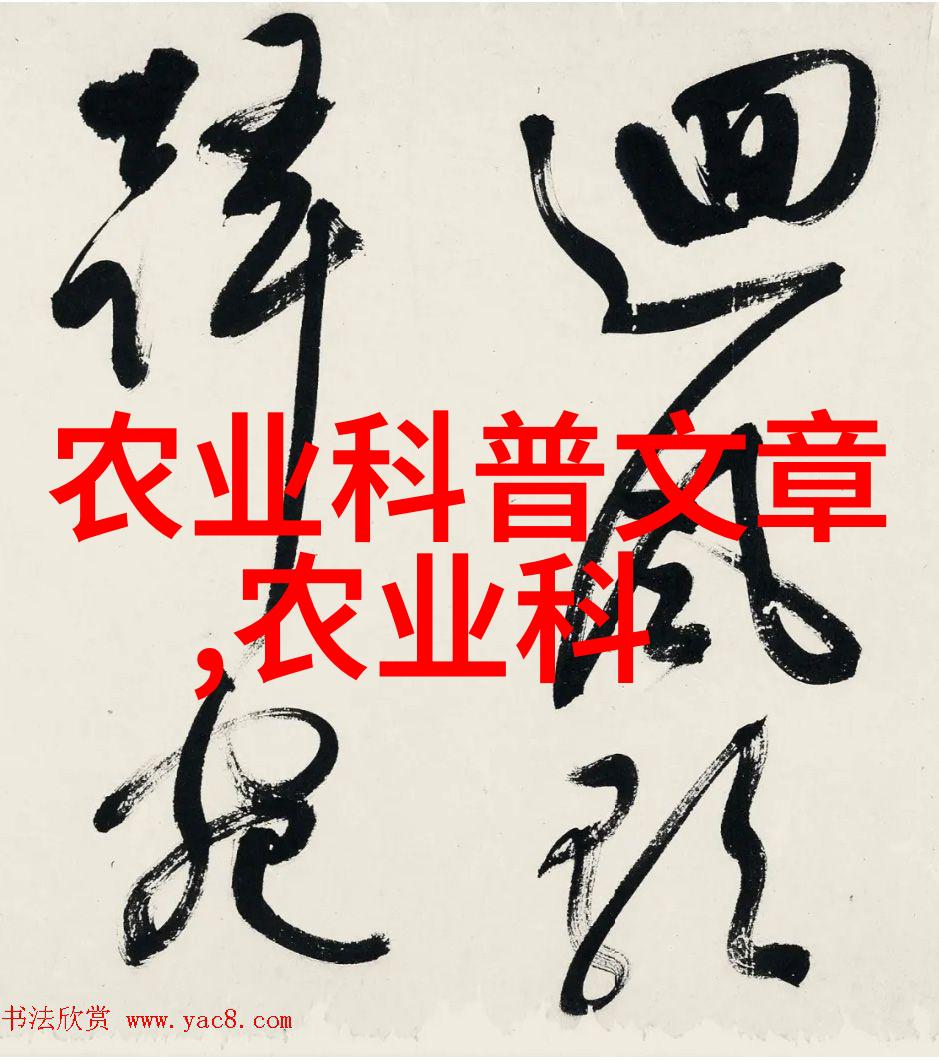 迴風
农业科普文章
,农业科
书法欣赏 www.yac8.com